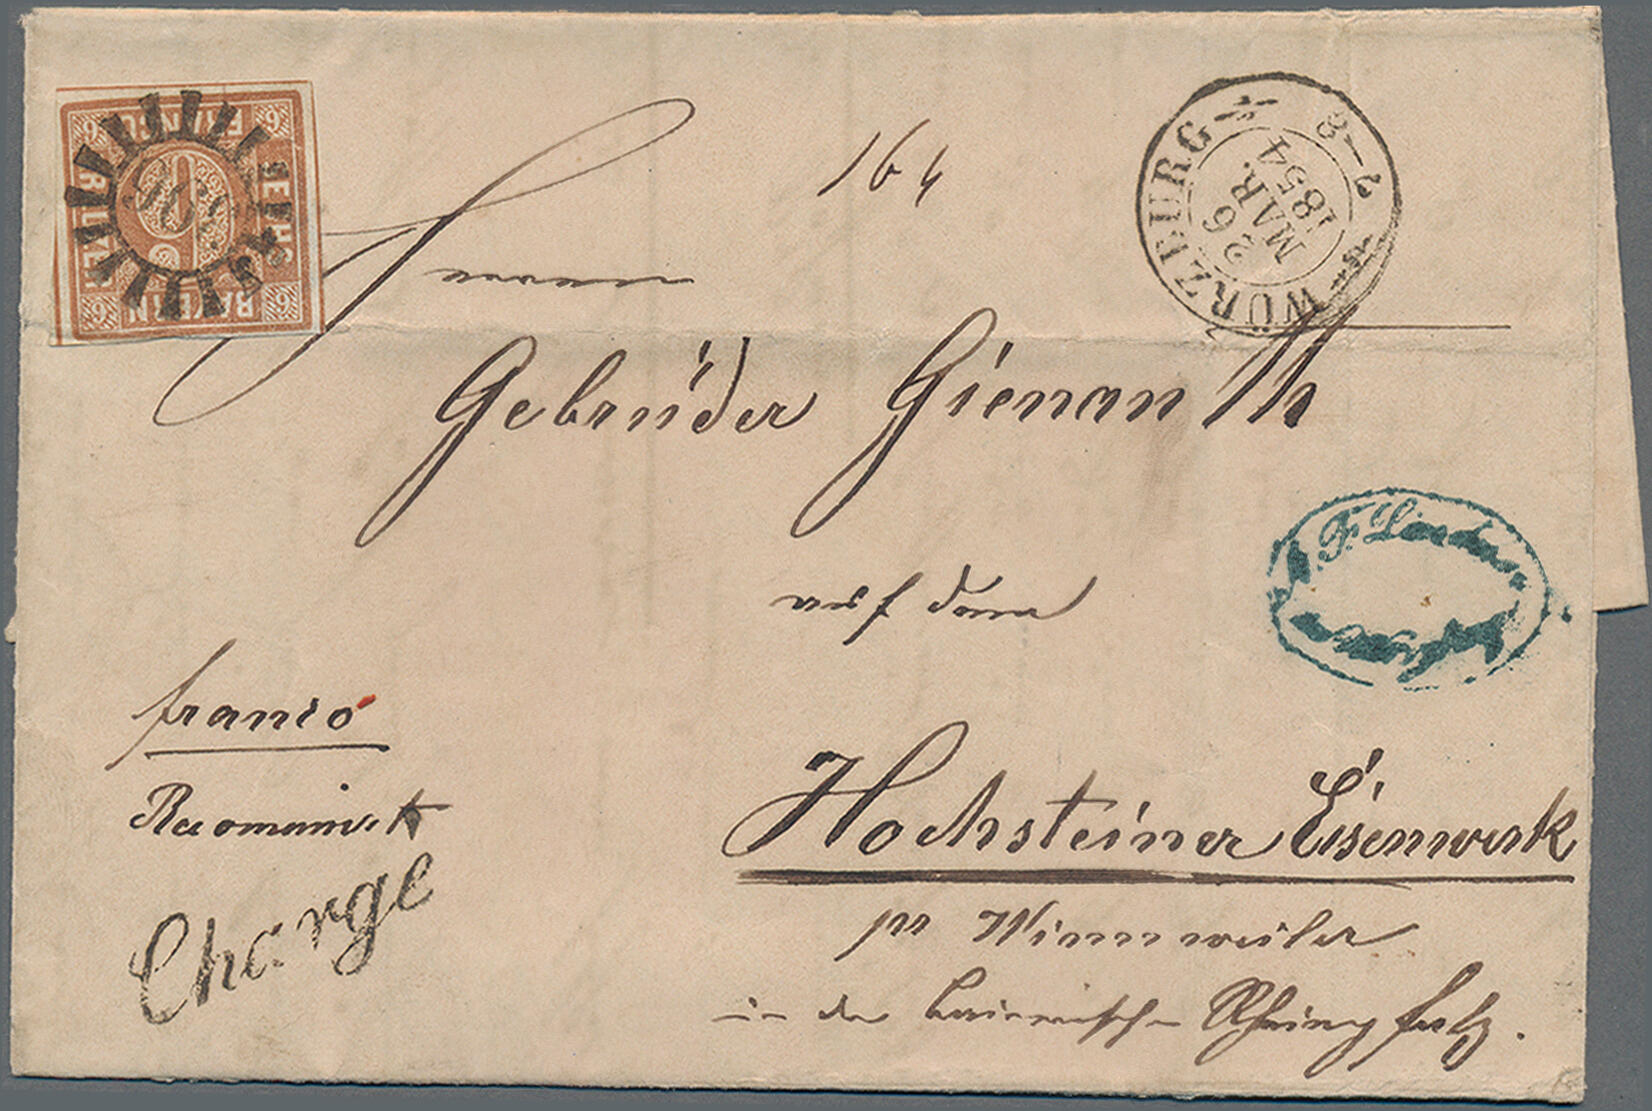 FRANCO
SECHS
BAYERN
KREUZER
6 6 6 6
164
WÜRZBURG
26
MAR.
1854
2-3
Herren
Gebrüder Gienanth
auf dem
F. Linder
franco
Recomand.
Charge
Hochsteiner Eisenwerk
pr Winnweiler
in der baierischen Rheinpfalz.